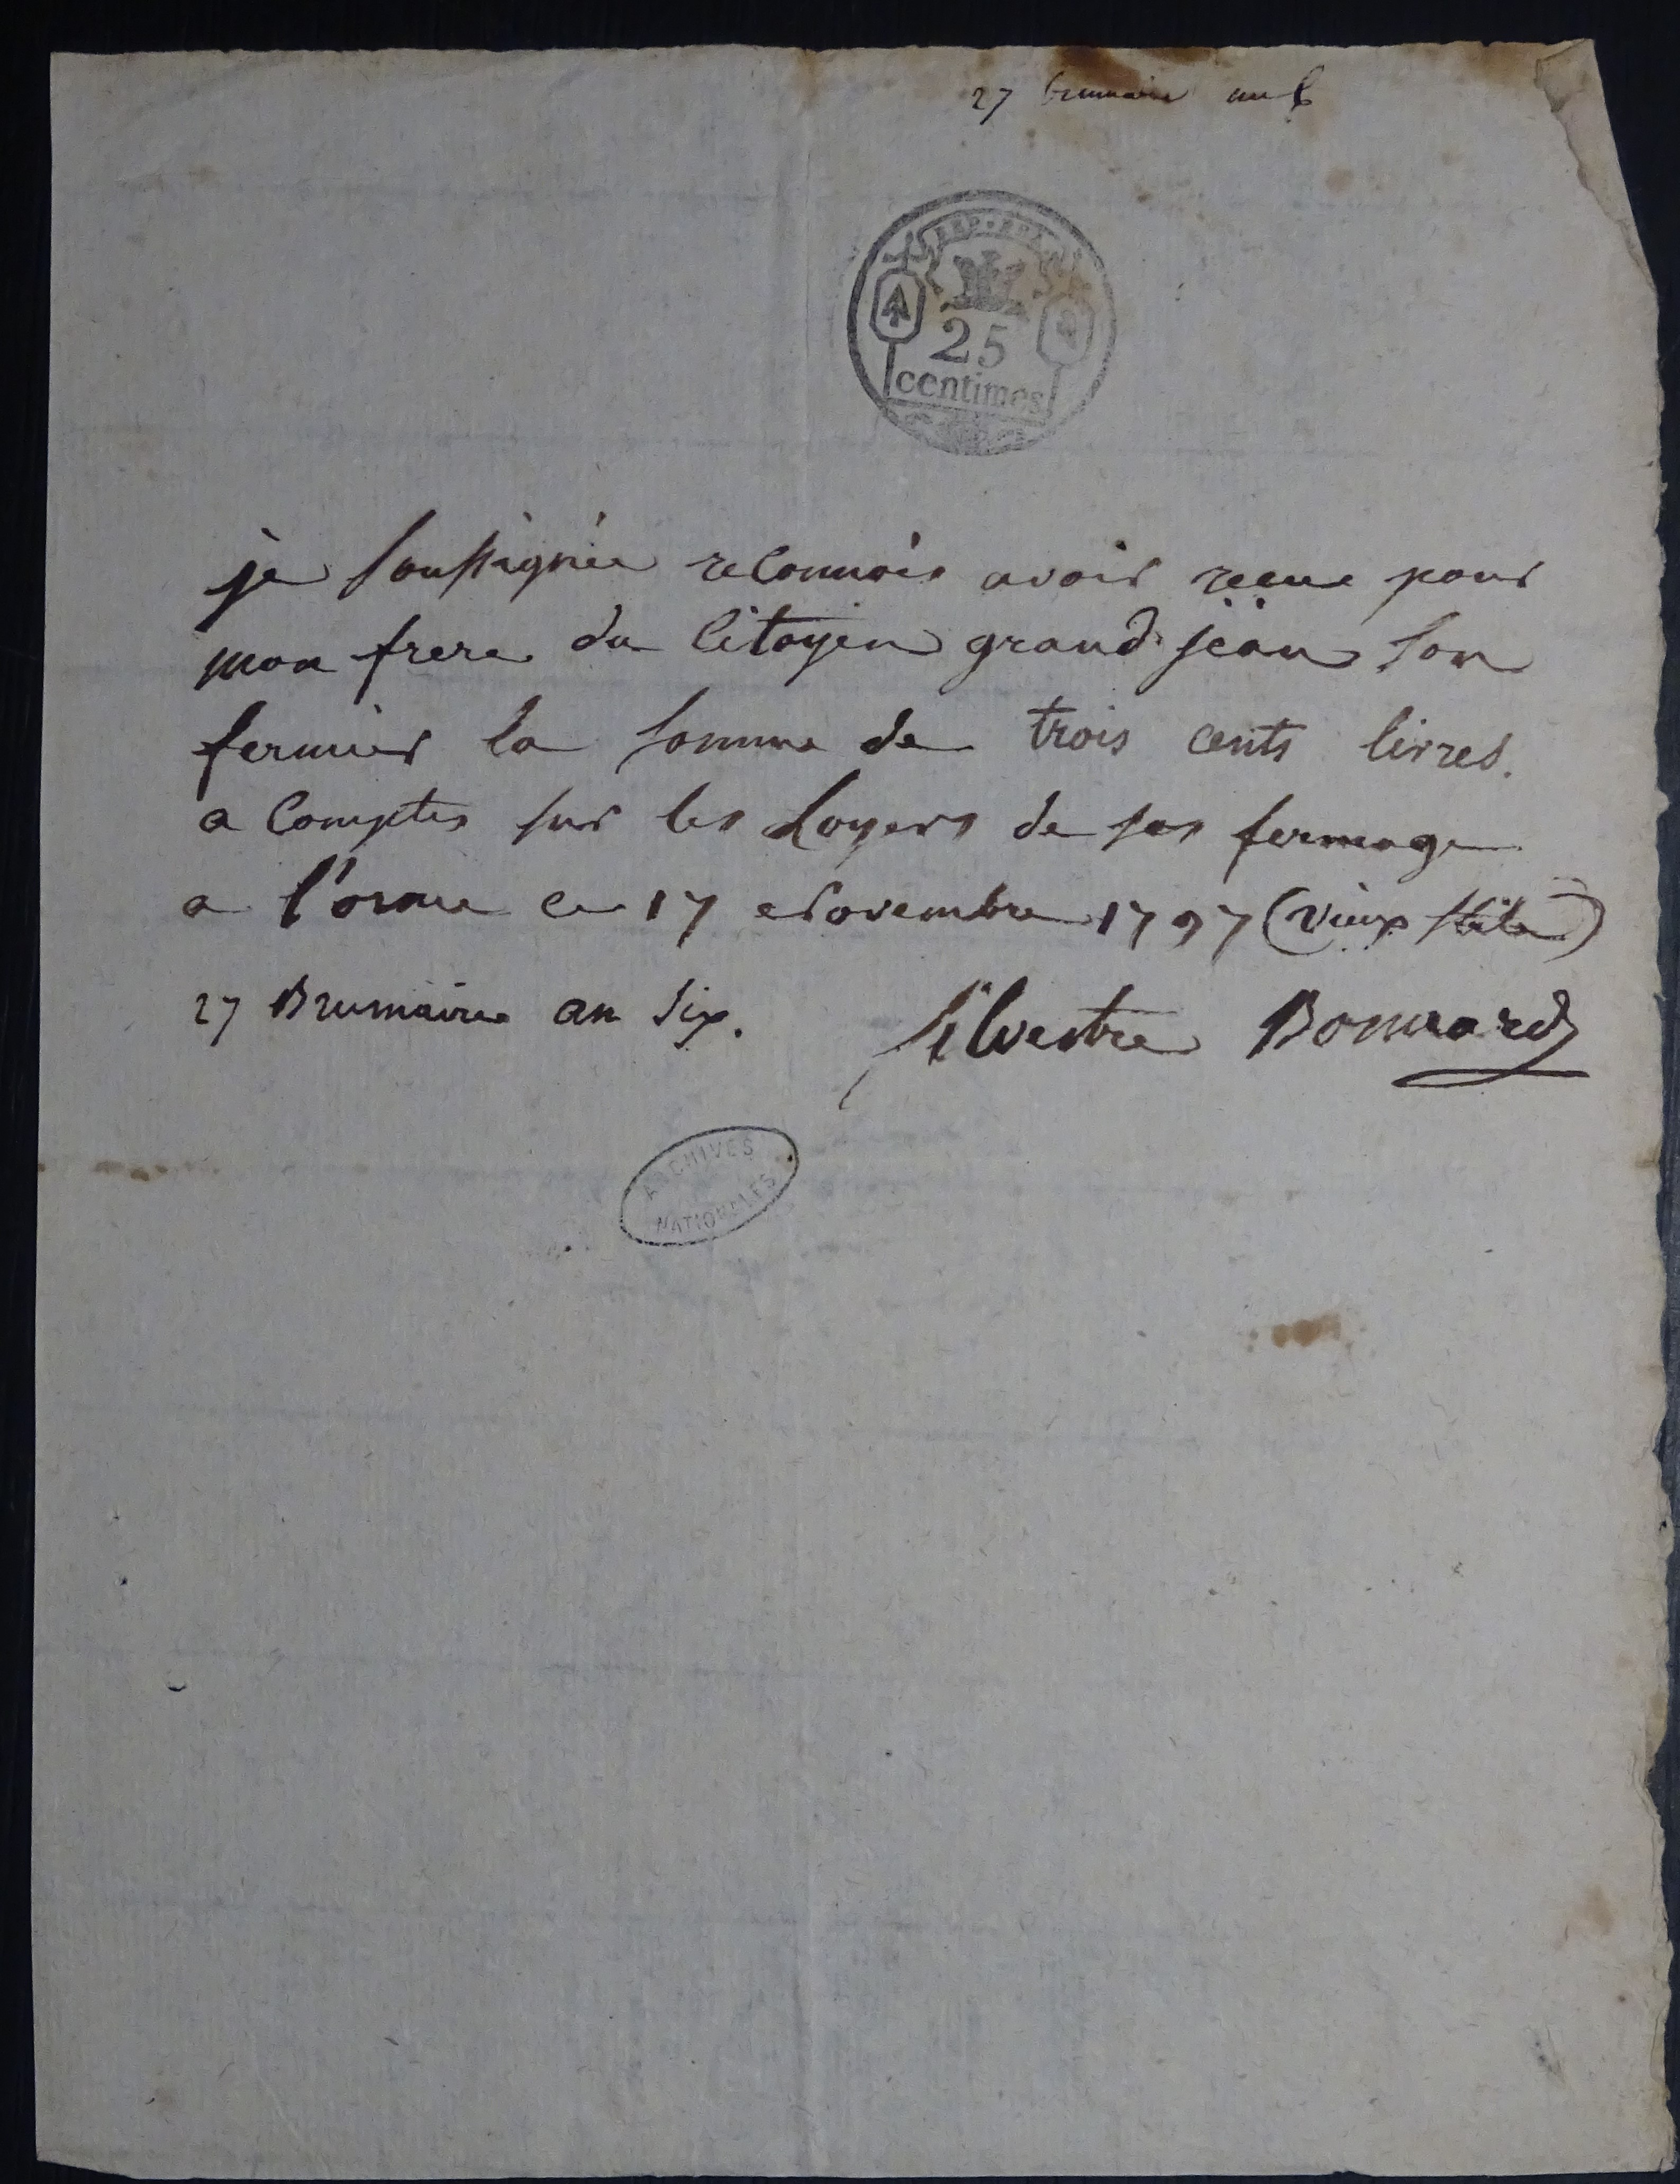 27 brumaire an 6
REP. FRA
25
centimes
je soussignée reconnois avoir recue pour
mon frere du citoyen grand jean son
fermier la somme de trois cents livres.
a comptes sur les Loyers de ses fermage
a l'orme ce 17 Novembre 1797 (vieux stile)
27 Brumaire an Six.
silvestre Bonnard
ARCHIVES
NATIONALES